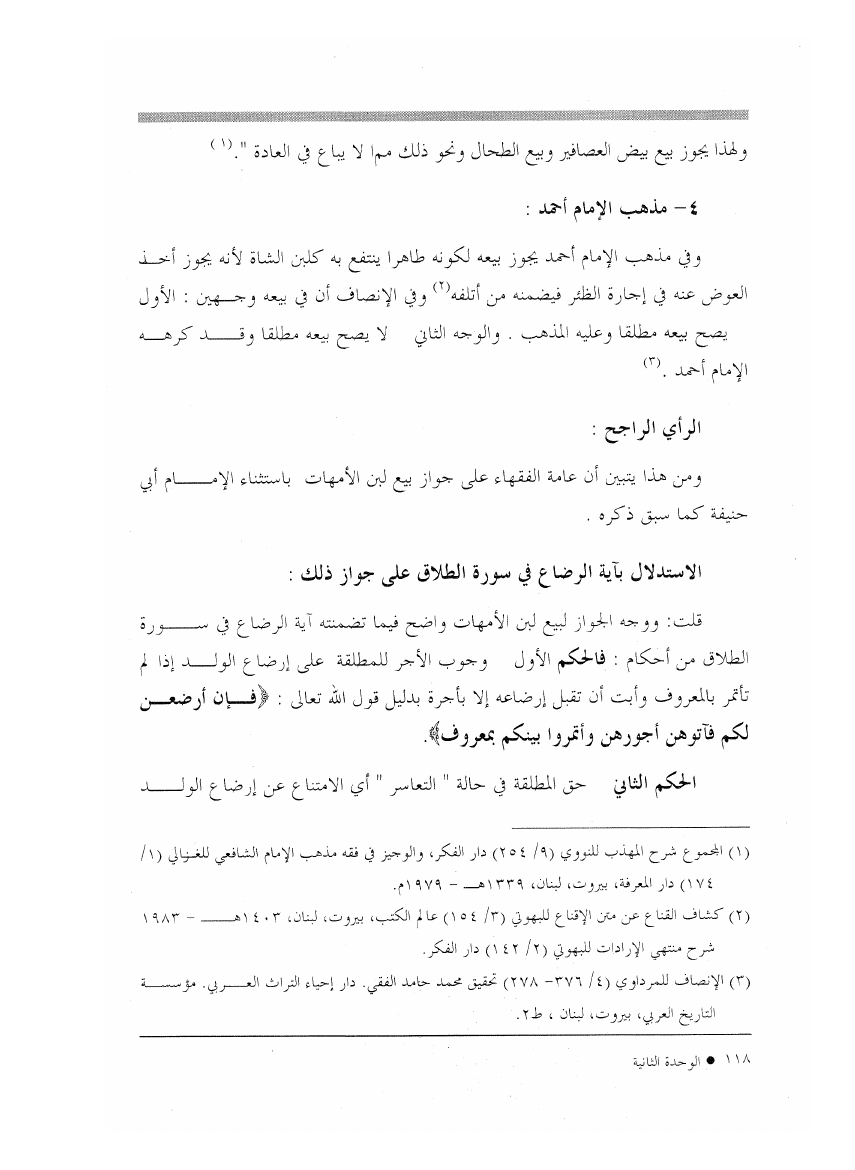 ولهذا يجوز بيع بيض العصافير وبيع الطحال ونحو ذلك مما لا يباع في العادة ".(١)
٤– مذهب الإمام أحمد :
وفي مذهب الإمام أحمد يجوز بيعه لكونه طاهرا ينتفع به كلبن الشاة لأنه يجوز أخذ
العوض عنه في إجارة الظئر فيضمنه من أتلفه(٢) وفي الإنصاف أن في بيعه وجهين : الأول
يصح بيعه مطلقا وعليه المذهب . والوجه الثاني لا يصح بيعه مطلقا وقد كرهه
الإمام أحمد .(٣)
الرأي الراجح :
ومن هذا يتبين أن عامة الفقهاء على جواز بيع لبن الأمهات باستثناء الإمام أبي
حنيفة كما سبق ذكره .
الاستدلال بآية الرضاع في سورة الطلاق على جواز ذلك :
قلت: ووجه الجواز لبيع لبن الأمهات واضح فيما تضمنته آية الرضاع في سورة
الطلاق من أحكام : فالحكم الأول وجوب الأجر للمطلقة على إرضاع الولد إذا لم
تأتمر بالمعروف وأبت أن تقبل إرضاعه إلا بأجرة بدليل قول الله تعالى : ﴿فإن أرضعن
لكم فآتوهن أجورهن وأتمروا بينكم بمعروف﴾.
الحكم الثاني حق المطلقة في حالة " التعاسر " أي الامتناع عن إرضاع الولد
(١) المجموع شرح المهذب للنووي (٩/ ٢٥٤) دار الفكر، والوجيز في فقه مذهب الإمام الشافعي للغزالي (١/
١٧٤) دار المعرفة، بيروت، لبنان، ١٣٣٩هـ – ١٩٧٩م.
(٢) كشاف القناع عن متن الإقناع للبهوتي (٣/ ١٥٤) عالم الكتب، بيروت، لبنان، ١٤٠٣هـ – ١٩٨٣
شرح منتهي الإرادات للبهوتي (٢/ ١٤٢) دار الفكر.
(٣) الإنصاف للمرداوي (٤/ ٣٧٦– ٢٧٨) تحقيق محمد حامد الفقي. دار إحياء التراث العربي. مؤسسة
التاريخ العربي، بيروت، لبنان ، ط٢.
١١٨ ● الوحدة الثانية